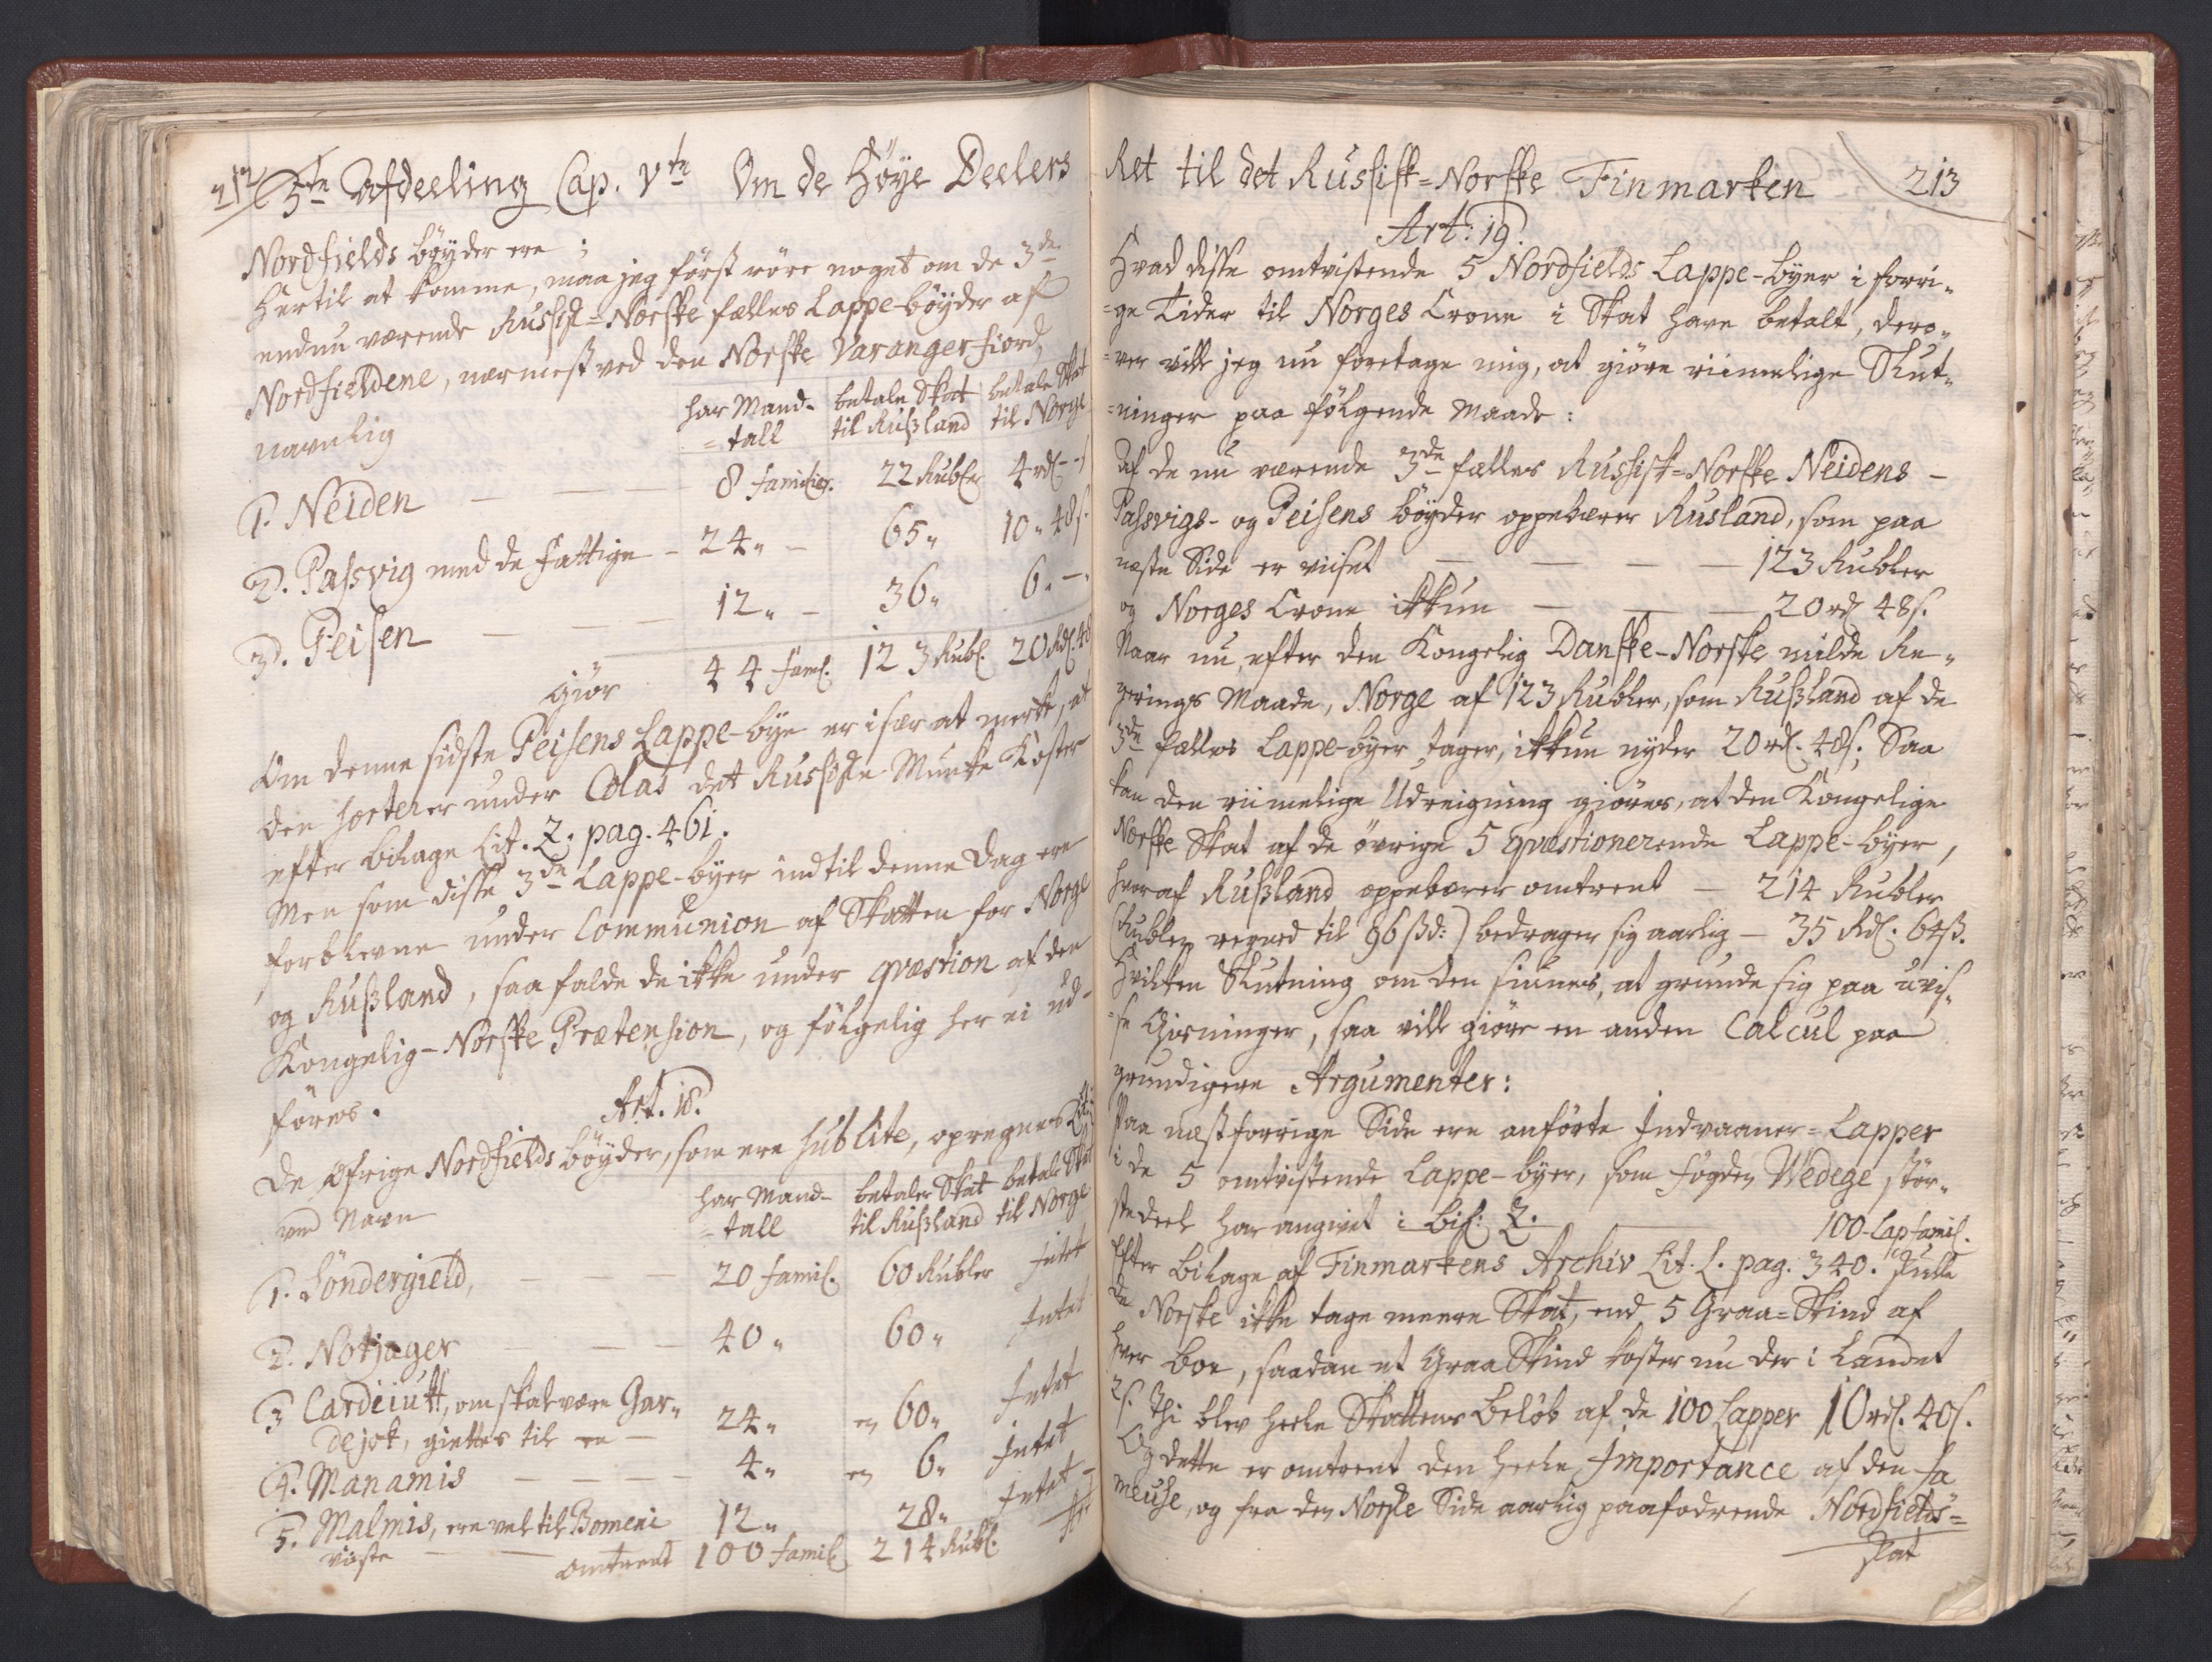 212
5te Afdeeling Cap. Vte Om de Høÿe Deelers
Nordfields bøÿder ere:
Hertil at komme, maa jeg først røre noget om de 3de
endnu værende Russisk-Norske fælles Lappe-bøÿder af
Nordfieldene, nærmest ved den Norske Varanger-fiord,
navnlig
har Mand- betale Skat betale Skat
=tall til Rußland til Norge
1. Neiden — — — 8 familier. 22 Rubler 4 rdl --
2. Passvig med de fattige - 24 „ - 65 „ 10 „ 48 s.
3. Peisen — — — 12 „ - 36 „ 6 „ -
giør 44 faml. 123 Rubl. 20 Rdl. 48
Om denne sidste Peisens Lappe-bÿe er især at merke, at
den hører under Colas det Russiske Munke Kloster
efter bilage Lit. Q. pag. 461.
Men som disse 3de Lappe-bÿer indtil denne Dag ere
forblevne under Communion af Skatten for Norge
og Rußland, saa falde de ikke under qvæstion af den
Kongelig-Norske Prætension, og følgelig her ei ud-
føres.
Art. 18.
De øfrige Nordfields bøÿder, som ere sub lite, opregnes
ved Navn
har Mand- betaler Skat betale Skat
=tall til Rußland til Norge
1. Söndergield, — — — 20 famil. 60 Rubler Intet
2. Notjager — — — 40 „ 60 „ Intet
3 Cardeiutt, om skal være Gar„ 24 „ 60 „ Intet
dejok, giettes til
4. Manamis — — — 4 „ 6 „ Intet
5. Malmis, ere vel til Bomeni 12 „ 28 „ Intet
viste — omtrent 100 famil. 214 Rubl.
Ret til det Russisk=Norske Finmarken 213
Art: 19.
Hvad disse omtvistende 5 Nordfields Lappe-bÿer i forri„
=ge Tider til Norges Crone i Skat have betalt, dero„
=ver vill jeg nu foretage mig, at giøre riimelige Slut„
=ninger paa følgende Maade:
Af de nu værende 3de fælles Russisk=Norske Neidens -
Passvigs- og Peisens bøÿder oppebærer Rusland, som paa
næste Side er viiset — — — — 123 Rubler
og Norges Crone ikkun — — — 20 rdl 48 s.
Naar nu, efter den Kongelig Danske-Norske milde Re„
gerings Maade, Norge af 123 Rubler, som Rußland af de
3de fælles Lappe-bÿer tager, ikkun nÿder 20 rdl. 48 s; Saa
kan den riimelige Udreigning giøres, at den Kongelige
Norske Skat af de øvrige 5 qvæstionerende Lappe-bÿer,
hvoraf Rußland oppebærer omtrent — 214 Rubler
(Rublen regned til 96 ßd:) bedrager sig aarlig — 35 Rdl. 64 ß.
Hvilken Slutning om den siunes, at grunde sig paa uvis„
=se Gisninger, saa vill giøre en anden Calcul paa
grundigere Argumenter:
Paa næstforrige Side ere anførte Indvaaner=Lapper
i de 5 omtvistende Lappe-bÿer, som fogden Wedege stør„
ste deel har angivet i Bil: Q. — 100 Lap famil.
Efter Bilage af Finmarkens Archiv Lit. L. pag. 340. skulle
de Norske ikke tage meere Skat, end 5 Graa=Skind af
hver Boe, saadan et Graa Skind koster nu der i Landet
2 s. Thi blev heele Skattens beløb af de 100 Lapper 10 rdl. 40 s.
Og dette er omtrent den heele Importance af den fa
meuse, og fra den Norske Side aarlig paafodrende Nordfields=
skat